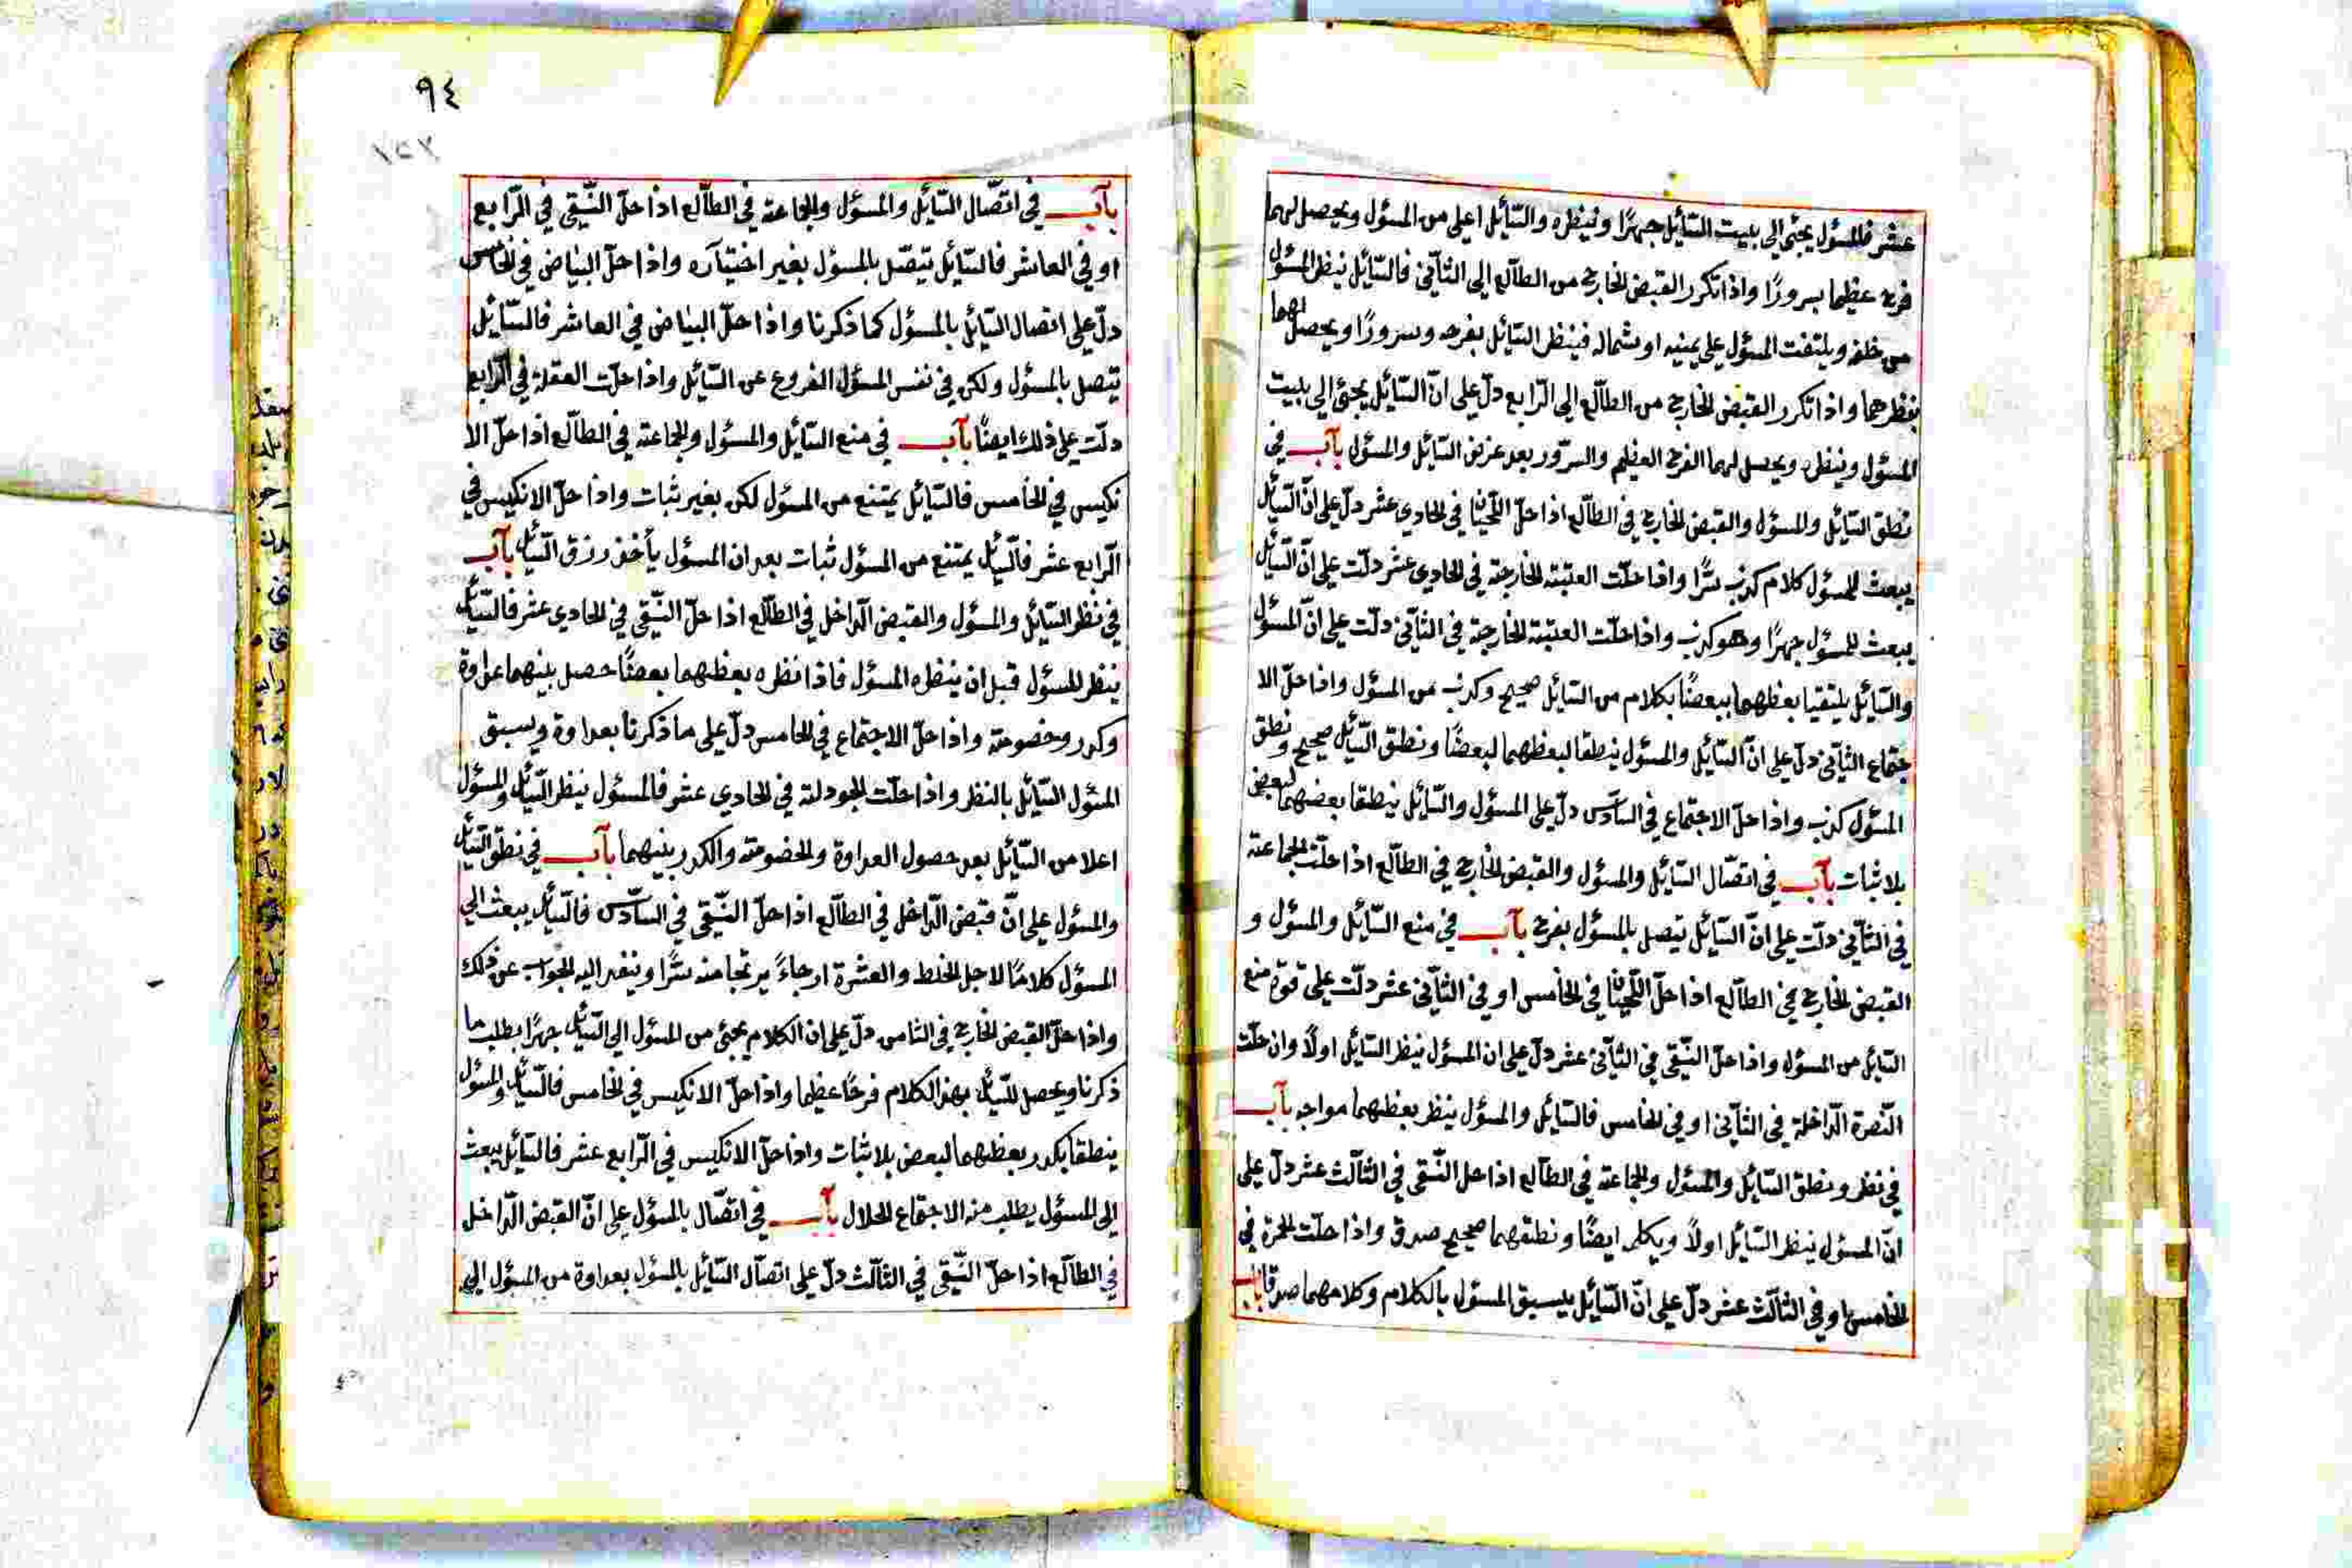 عشر فالمسؤل يجئ الى بيت السّائل جهرًا وينظره والسّائل اعلى من المسؤل ويحصل لهما
فرح عظيما سرورًا واذا تكرر القبض الخارج من الطالع الى الثآني فالسّائل ينظر المسؤل
من خلفه ويلتفت المسؤل على يمينه او شماله فينظر السّائل بفرحه وسرورًا ويحصل لهما
بنظرهما واذا تكرر القبض الخارج من الطالع الى الرّابع دلّ على انّ السّائل يجئ الى بليت
المسؤل وينظره ويحصل لهما الفرح العظيم والسرّور بعد غرض السّائل والمسؤل بآب في
نطق السّائل والمسؤل والقبض الخارج في الطآلع اذا حلّ اللّحيٰان في الحادي عشر دلّ على انّ السّائل
يبعث للمسؤل كلام كذب سرًّا واذا حلّت العتبة الخارجة في الحادي عشر دلّت على انّ السّائل
يبعث للمسؤل جهرًا وهو كذب واذا حلّت العتبة الخارجة في الثآني دلّت على انّ المسؤل
والسّائل يلتقيا بعظهما ببعضًا بكلام من السّائل صحيح وكذب من المسؤل واذا حلّ الا
جتماع الثآني دلّ على انّ السّائل والمسؤل ينطقا لبعظهما لبعضًا ونطق السّائل صحيح ونطق
المسؤل كذب واذا حلّ الاجتماع في السآدس دلّ على المسؤل والسّائل ينطقا بعضهما لبعض
بلا ثبات بآب في اتصّال السّائل والمسؤل والقبض الخارج في الطآلع اذا حلّت الجماعة
في الثآني دلّت على انّ السّائل يتصل بالمسؤل بفرح بآب في منع السّائل والمسؤل و
القبض الخارج في الطآلع اذا حلّ اللّحيٰان في الخامس او في الثآني عشر دلّت على قوّة منع
السّائل من المسؤل واذا حلّ النّقي في الثآني عشر دلّ على ان المسؤل ينظر السّائل اولاً وان حلّت
النّصرة الدّاخلة في الثآني او في الخامس فالسّائل والمسؤل ينظر بعظهما مواجه بآب
في نظر ونطق السّائل والمسؤل والجماعة في الطآلع اذا حل النّقي في الثآلث عشر دلّ على
انّ المسؤل ينظر السّائل اولاً ويكلمه ايضًا ونطقهما صحيح صدق واذا حلّت الحمرة في
الخامس او في الثآلث عشر دلّ على انّ السّائل يسبق المسؤل بالكلام وكلامهما صدقا باب
٩٤
بآب في اتصّال السّائل والمسؤل والجماعة في الطآلع اذا حلّ النّقي في الرّابع
او في العاشر فالسّائل يتصّل بالمسؤل بغير اختيآره واذا حلّ البيٰاض في الخامس
دلّ على اتصال السّائل بالمسؤل كما ذكرنا واذا حلّ البيٰاض في العاشر فالسّائل
يتصل بالمسؤل ولكن في نفس المسؤل الفروع عن السّائل واذا حلّت العقلة في الرّابع
دلّت على ذلك ايضًا بآب في منع السّائل والمسؤل والجماعة في الطآلع اذا حلّ الا
نكيس في الخامس فالسّائل يمتنع من المسؤل لكن بغير ثبات واذا حلّ الانكيس في
الرّابع عشر فالسّئل يمتنع من المسؤل ثبات بعد ان المسؤل يأخذ رزق السّئل بآب
في نظر السّائل والمسؤل والقبض الدّاخل في الطآلع اذا حلّ النّقي في الحادي عشر فالسّئل
ينظر للمسؤل قبل ان ينظره المسؤل فاذا نظره بعظهما بعضًا حصل بينهما عداوة
وكدر وخضومة واذا حلّ الاجتماع في الخامس دلّ على ما ذكرنا بعداوة ويسبق
المسؤل السّائل بالنظر واذا حلّت الجودلة في الحادي عشر فالمسؤل ينظر السّئل والمسؤل
اعلا من السّائل بعد حصول العداوة والخضومة والكدر بينهما بآب في نطق السّئل
والمسؤل على انّ قبض الدّاخل في الطآلع اذا حلّ النّقي في السآدس فالسّئل يبعث الى
المسؤل كلامًا لاجل الخلط والعشرة ارجاءً يرتجا منه سرًّا وينفد اليه الجواب عن ذلك
واذا حلّ القبض الخارج في الثامن دلّ على ان الكلام يجئ من المسؤل الى السّئل جهرًا بطلب ما
ذكرنا ويحصل للسّئل بهذا الكلام فرحًا عظيما واذا حلّ الانكيس في الخامس فالسّئل والمسؤل
ينطقا بكدر بعظهما لبعض بلا ثبات واذا حلّ الانكيس في الرّابع عشر فالسّائل يبعث
الى المسؤل يطلب منه الاجتماع الحلال بآب في اتصّال بالمسؤل على انّ القبض الدّاخل
في الطآلع اذا حلّ النّقي في الثآلث دلّ على اتصّال السّائل بالمسؤل بعداوة من المسؤل الى